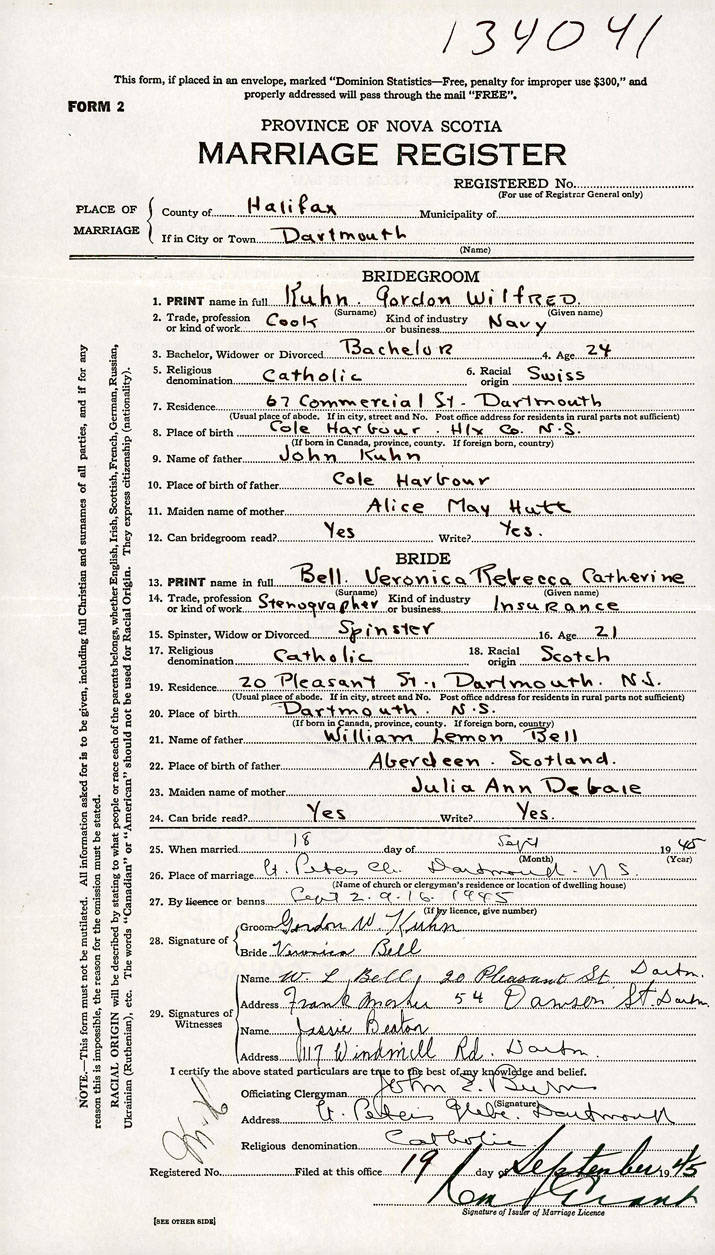 134041
This form, if placed in an envelope, marked "Dominion Statistics—Free, penalty for improper use $300," and
properly addressed will pass through the mail "FREE".
FORM 2
PROVINCE OF NOVA SCOTIA
MARRIAGE REGISTER
REGISTERED No.
(For use of Registrar General only)
PLACE OF MARRIAGE
County of Halifax Municipality of
If in City or Town Dartmouth
(Name)
BRIDEGROOM
1. PRINT name in full Kuhn. Gordon WilfRED.
(Surname) (Given name)
2. Trade, profession or kind of work Cook Kind of industry or business Navy
3. Bachelor, Widower or Divorced Bachelor 4. Age 24
5. Religious denomination Catholic 6. Racial origin Swiss
7. Residence 67 Commercial St. Dartmouth
(Usual place of abode. If in city, street and No. Post office address for residents in rural parts not sufficient)
8. Place of birth Cole Harbour. Hfx Co. N.S.
(If born in Canada, province, county. If foreign born, country)
9. Name of father John Kuhn
10. Place of birth of father Cole Harbour
11. Maiden name of mother Alice May Hutt
12. Can bridegroom read? Yes Write? Yes.
BRIDE
13. PRINT name in full Bell. Veronica Rebecca Catherine
(Surname) (Given name)
14. Trade, profession or kind of work Stenographer Kind of industry or business Insurance
15. Spinster, Widow or Divorced Spinster 16. Age 21
17. Religious denomination Catholic 18. Racial origin Scotch
19. Residence 20 Pleasant St., Dartmouth. N.S.
(Usual place of abode. If in city, street and No. Post office address for residents in rural parts not sufficient)
20. Place of birth Dartmouth. N.S.
(If born in Canada, province, county. If foreign born, country)
21. Name of father William Lemon Bell
22. Place of birth of father Aberdeen. Scotland.
23. Maiden name of mother Julia Ann Debaie
24. Can bride read? Yes Write? Yes.
25. When married 18 day of Sept 1945
(Month) (Year)
26. Place of marriage St. Peters Ch. Dartmouth. N.S.
(Name of church or clergyman's residence or location of dwelling house)
27. By licence or banns Sept 2.9.16. 1945
(If by licence, give number)
28. Signature of
Groom Gordon W. Kuhn
Bride Veronica Bell
29. Signatures of Witnesses
Name W. L. Bell, 20 Pleasant St. Dartm.
Address Frank 54 Dawson St. Dartm.
Name Jessie Beaton
Address 117 Windmill Rd. Dartm.
I certify the above stated particulars are true to the best of my knowledge and belief.
Officiating Clergyman John E. Burns
(Signature)
Address St. Peters Glebe. Dartmouth
Religious denomination Catholic
Registered No. Filed at this office 19 day of September 1945
Grant
Signature of Issuer of Marriage Licence
[SEE OTHER SIDE]
NOTE.—This form must not be mutilated. All information asked for is to be given, including full Christian and surnames of all parties, and if for any
reason this is impossible, the reason for the omission must be stated.
RACIAL ORIGIN will be described by stating to what people or race each of the parents belongs, whether English, Irish, Scottish, French, German, Russian,
Ukrainian (Ruthenian), etc. The words "Canadian" or "American" should not be used for Racial Origin. They express citizenship (nationality).